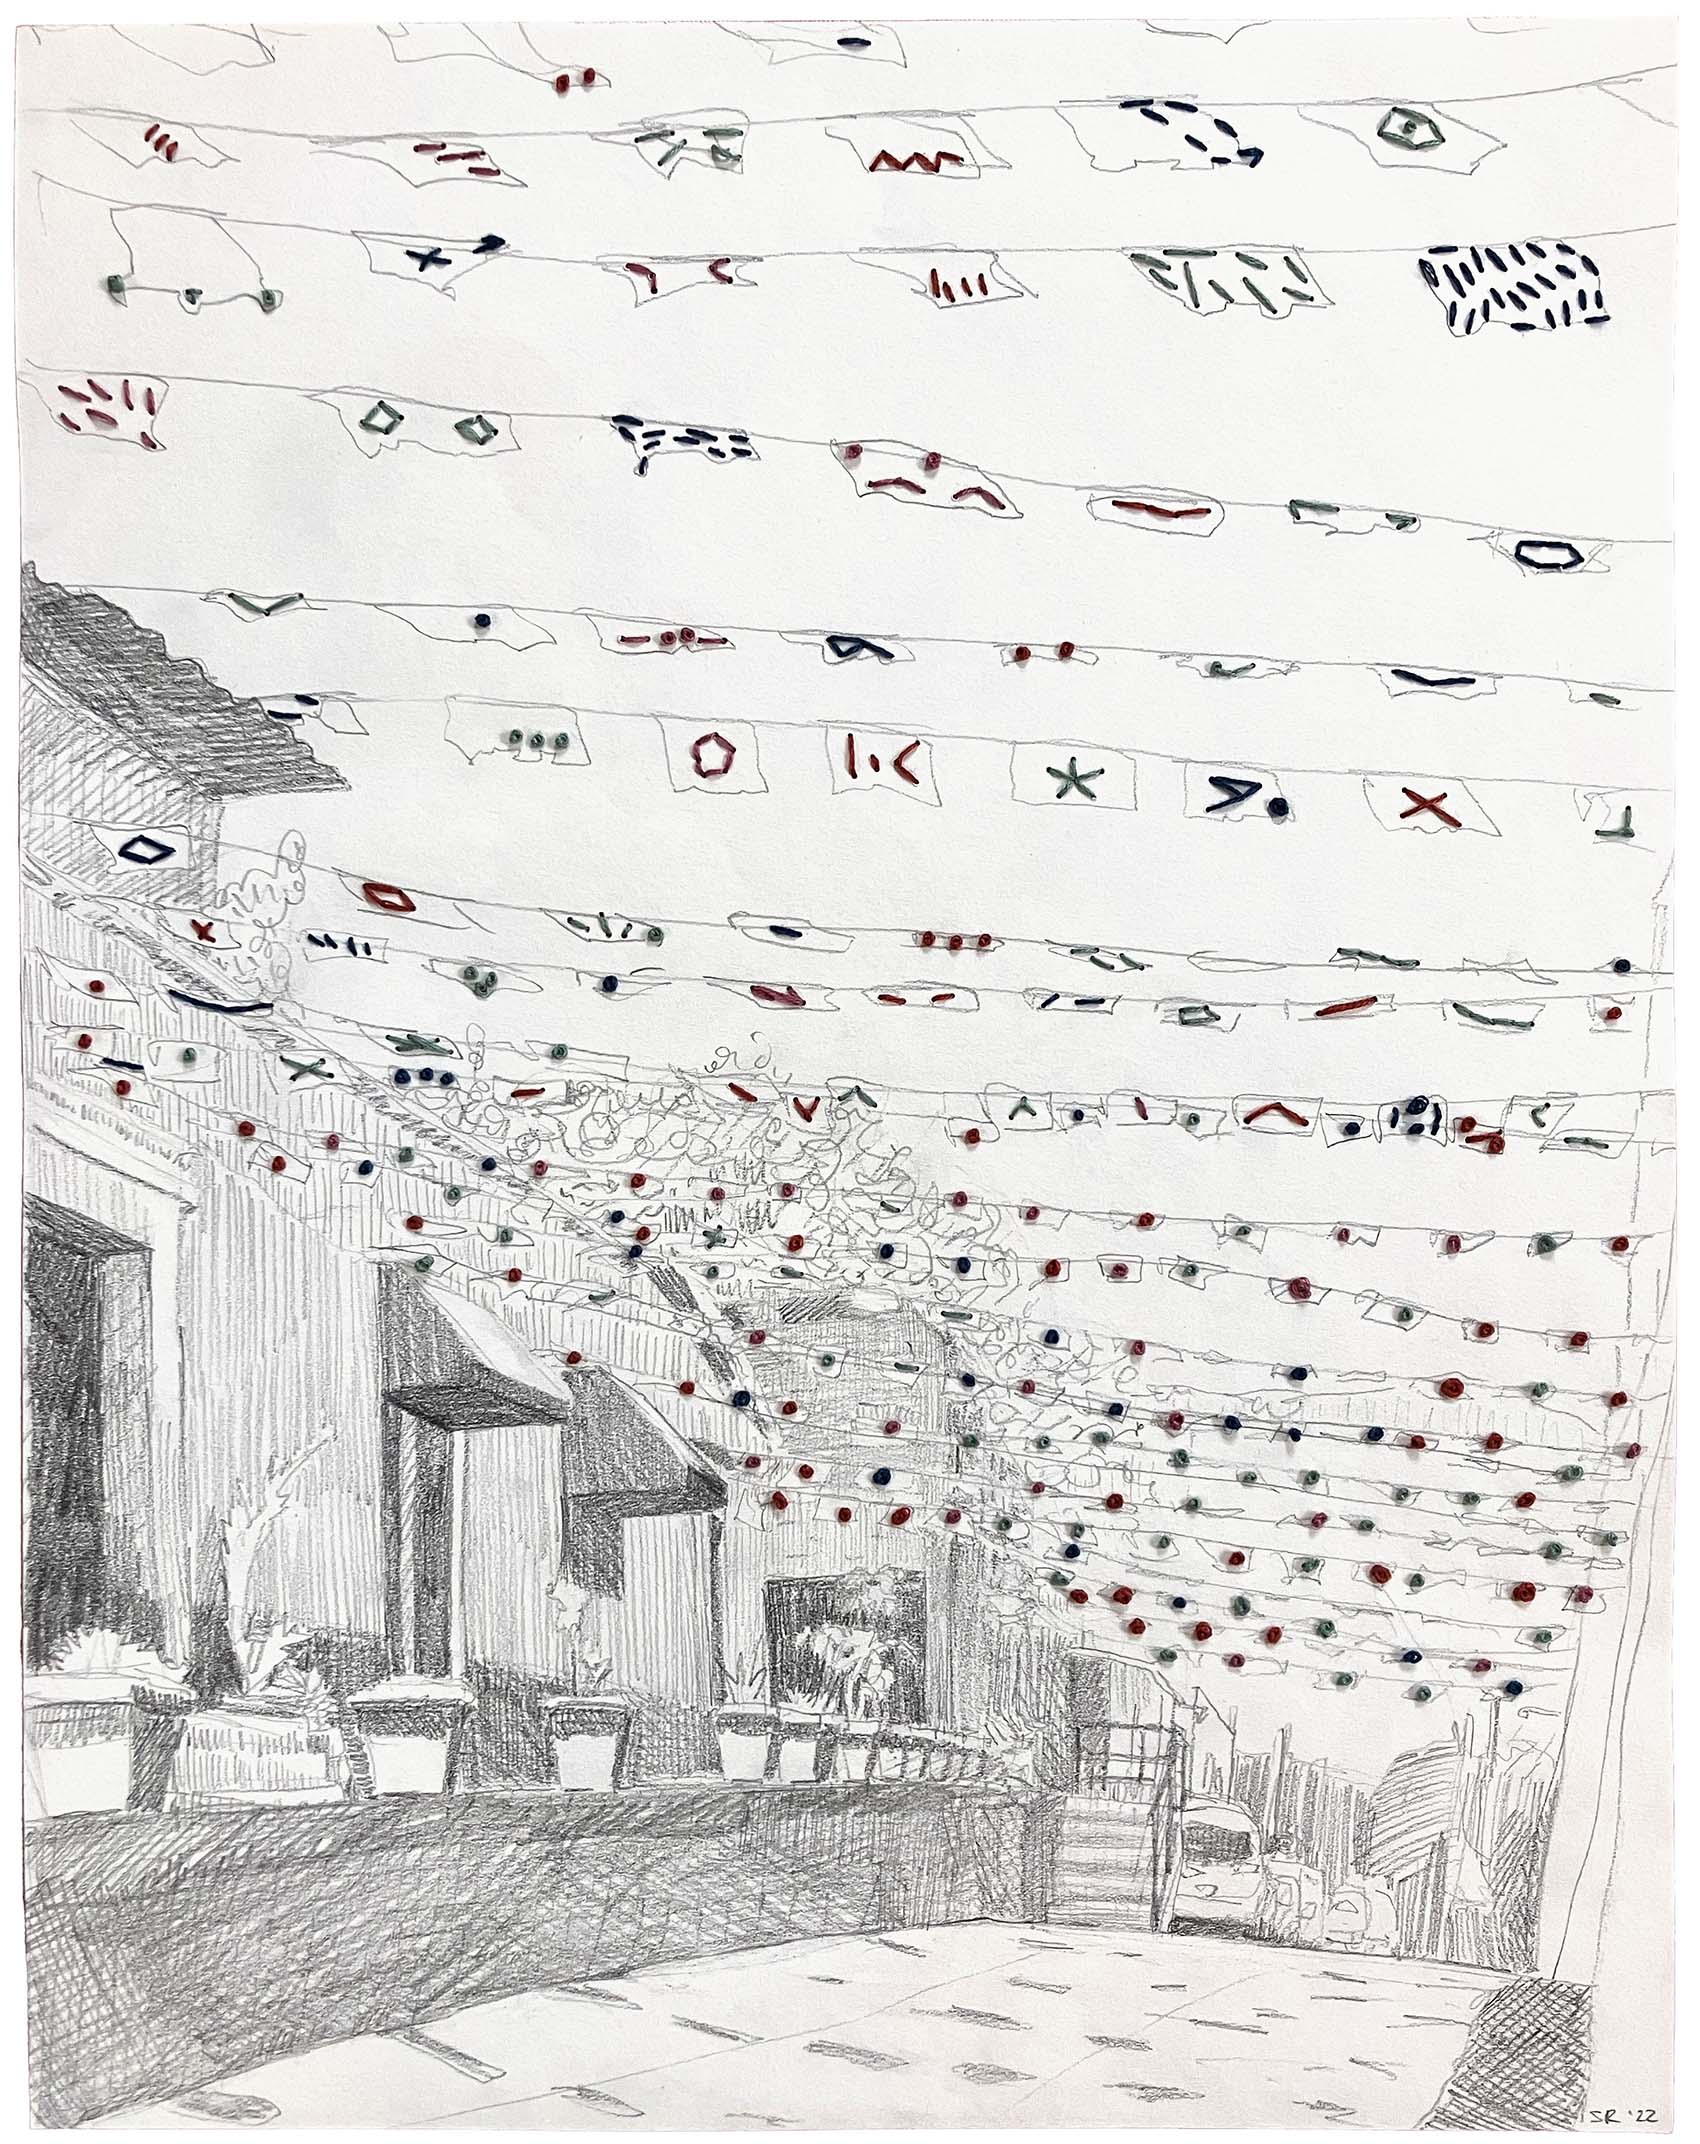 SR '22